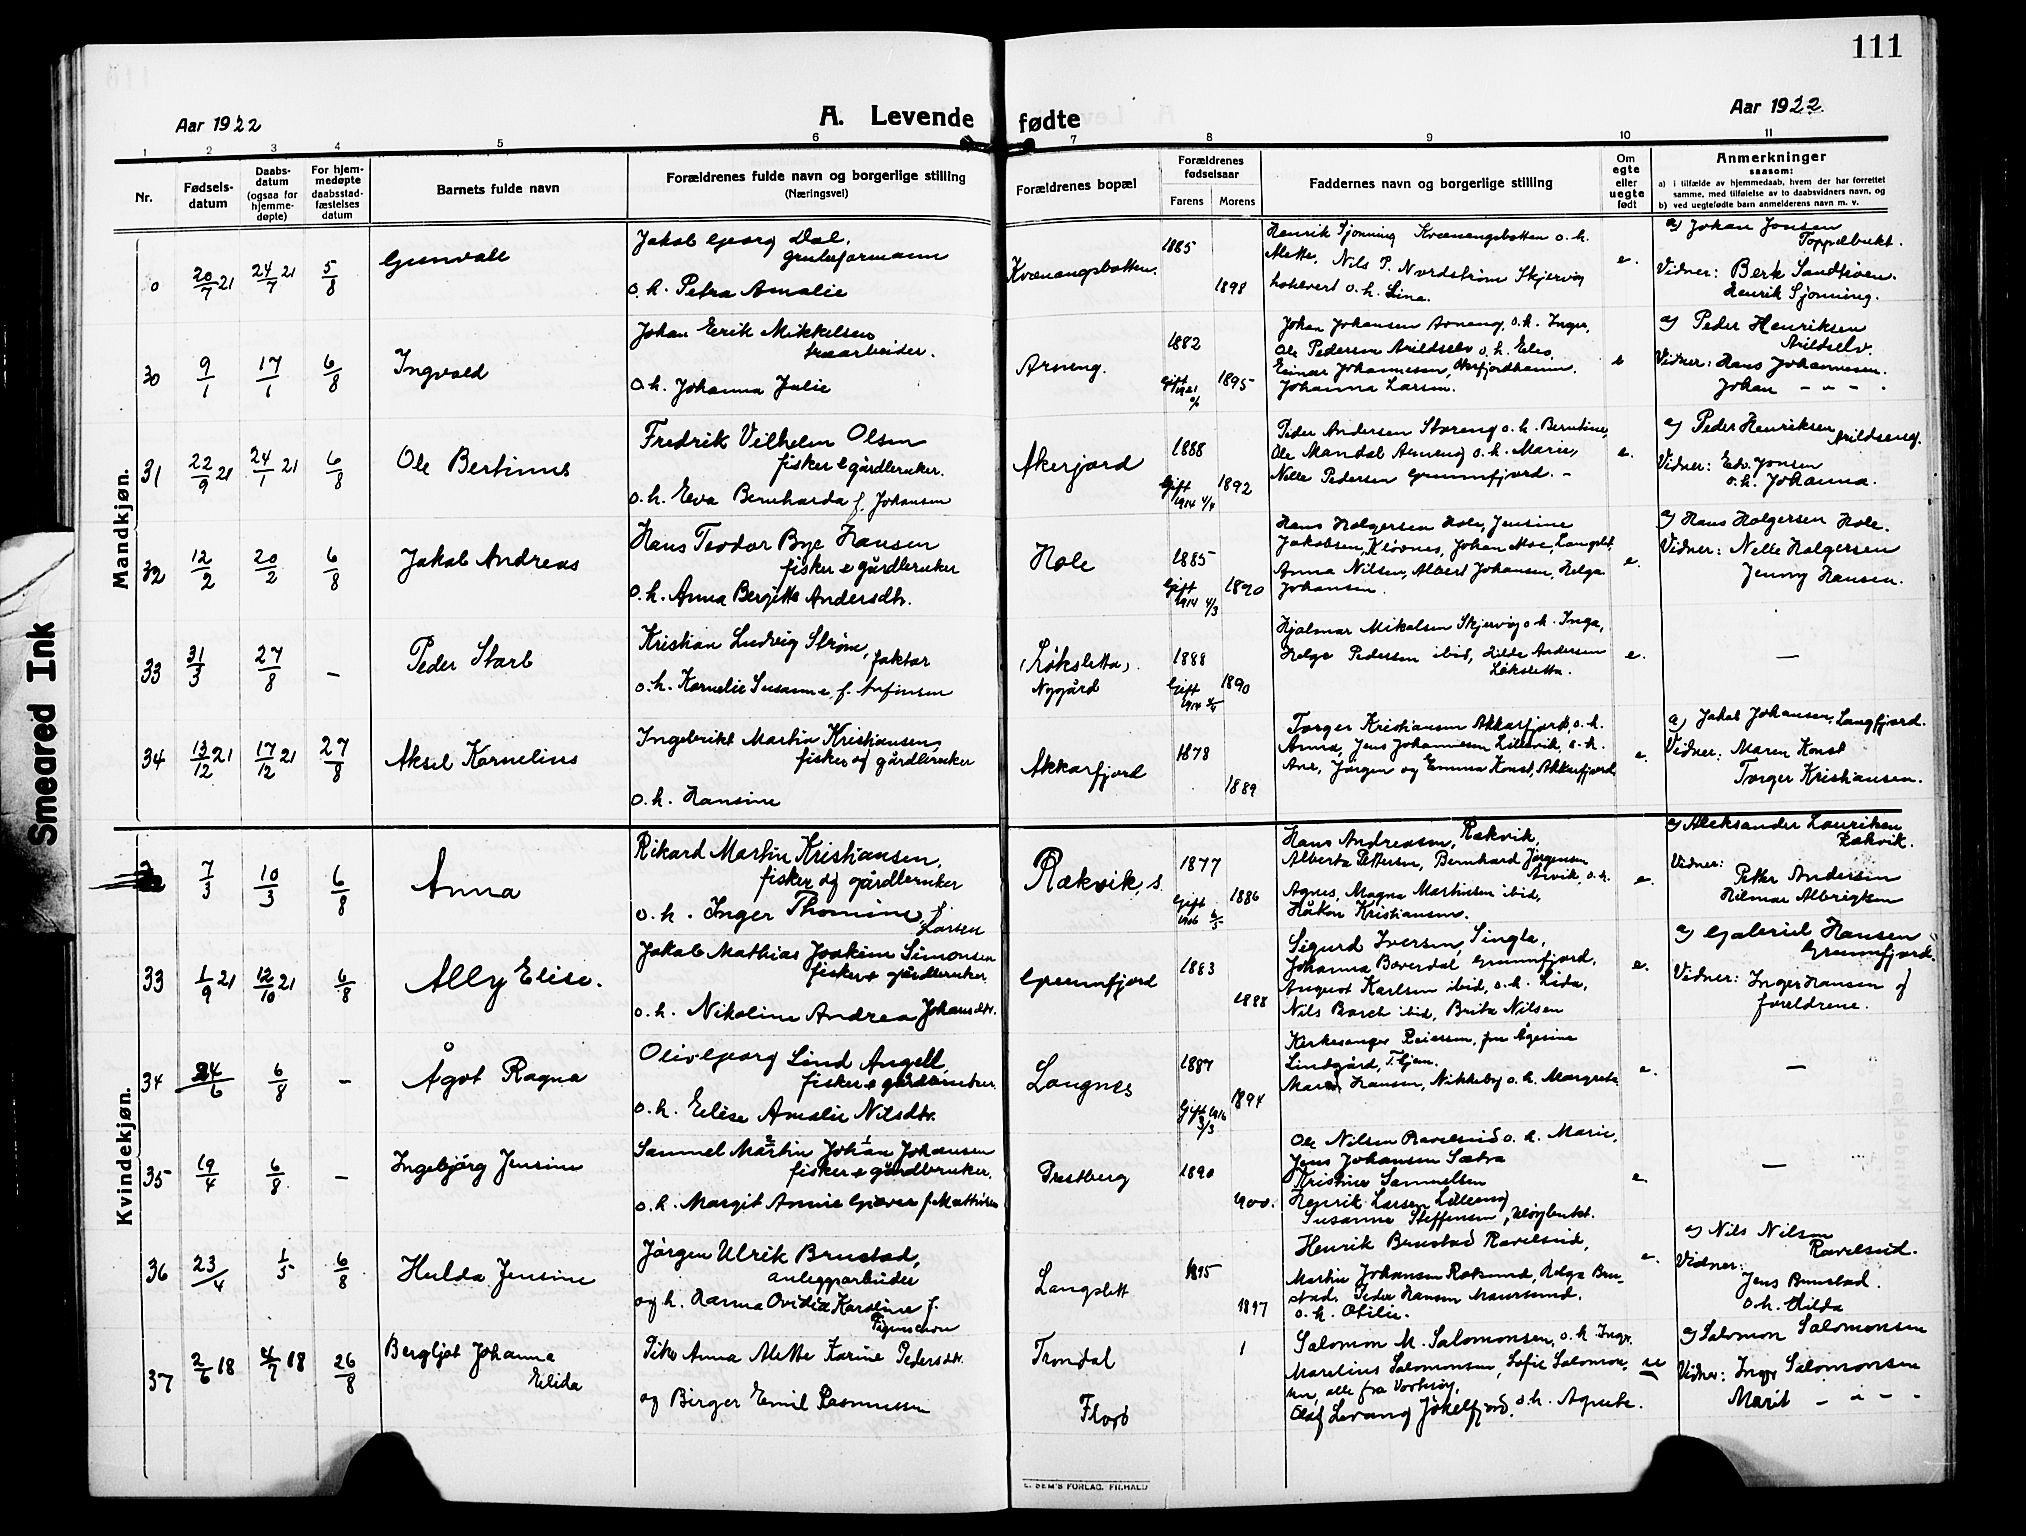 111
Aar 1922
A. Levende fødte
Aar 1922
1 2 3 4 5 6 7 8 9 10 11
Nr.
Fødsels-
datum
Daabs-
datum
(ogsaa for
hjemme-
døpte)
For hjem-
medøpte
daabsstad-
fæstelses
datum
Barnets fulde navn
Forældrenes fulde navn og borgerlige stilling
(Næringsvei)
Forældrenes bopæl
Forældrenes
fødselsaar
Farens Morens
Faddernes navn og borgerlige stilling
Om
egte
eller
uegte
født
Anmerkninger
saasom:
a) i tilfælde av hjemmedaab, hvem der har forrettet
samme, med tilføielse av to daabsvidners navn, og
b) ved uegtefødte barn anmelderens navn m. v.
Mandkjøn.
0 20/7 21 24/7 21 5/8 Gunvald
Jakob Georg Dal,
gruveformann
o.h. Petra Amalie
Kvænangsbotten.
1885
1898
Henrik Sjönning Kvænangsbotten o.h.
Alette, Nils P. Nordström Skjervöy
o.h. Lina.
e.
a) Johan Jonsen
Toppelbukt.
Vidner: Berk Sandtröen.
Henrik Sjönning.
30 9/1 17/1 6/8 Ingvald
Johan Eerik Mikkelsen
træarbeider.
o.h. Johanna Julie
Arneng.
1882
Gift 1921
1895
Johan Johansen Arneng, o.h. Inger,
Ole Pedersen Arildselv o.h. Elen,
Einar Johannesen, Akerfjordhamn,
Johanna Larsen.
e
a) Peder Henriksen
Arildselv.
Vidner: Hans Johannesen.
Johan – " – "
31 22/9 21 24/1 21 6/8 Ole Bertinus
Fredrik Vilhelm Olsen
fisker & gårdbruker.
o.h. Eva Bernharda f. Johansen
Akerfjord
1888
Gift 1914 4/4
1892
Peder Andersen Storeng o.h. Berntine,
Ole Mandal Arneng o.h. Marie,
Nelle Pedersen Grunnfjord. –
e.
a) Peder Henriksen
Arildseng.
Vidner: Edv. Jonsen
o.h. Johanna.
32 12/2 20/2 6/8 Jakob Andreas
Hans Teodor Bye Hansen
fisker & gårdbruker
o.h. Anna Bergitte Andersdtr.
Hole
1885
Gift 1914 4/3
1890
Hans Holgersen Hole, Jensine
Jakobsen, Klövnes, Johan Moe, Langslet,
Anna Nilsen, Albert Johansen, Helga
Johansen.
e.
a) Hans Holgersen Hole.
Vidner: Nelle Holgersen
Jenny Hansen.
33 31/3 27/8 – Peder Starb
Kristian Ludvig Ström,
faktor
o.h. Kornelie Susanne f. Anfinsen
(Løkslette)
Nygård
1888
Gift 1914
1890
Hjalmar Mikalsen Skjervöy o.h. Inga,
Helge Pedersen ibid, Hilda Andersen
Løkslette.
e.
–
34 13/12 21 17/12 21 27/8 Aksel Kornelius
Ingebrikt Martin Kristiansen,
fisker og gårdbruker
o.h. Hansine
Akkarfjord
1878
1889
Torger Kristiansen Akkarfjord, o.h.
Anna, Jens Johannesen Lillevik, o.h.
Ane, Jörgen og Emma Konst, Akkarfjord.
e.
a) Jakob Johansen, Langfjord.
Vidner: Maren Konst
Torger Kristiansen.
Kvindekjøn.
7/3 10/3 6/8 Anna
Rikard Martin Kristiansen,
fisker og gårdbruker
o.h. Inger Thomine f. Larsen
Rækvik, s.
1877
Gift 1906
1886
Hans Andreassen, Rækvik,
Alberta Pettersen, Bernhard Jørgensen
Arvik, o.h.
Agnes, Magna Martinsen ibid,
Håkon Kristiansen.
e.
a) Aleksander Lauriksen
Rækvik.
Vidner:
Petter Andersen
Hilmar Albrigtsen
33 1/9 21 12/10 21 6/8 Ally Elise.
Jakob Mathias Joakim Simonsen
fisker & gårdbruker
o.h. Nikoline Andrea Johansdtr.
Grunnfjord
1883
1888
Sigurd Iversen, Singla,
Johanna Baverdal Grunnfjord,
August Karlsen ibid, o.h. Lida,
Nils Basch ibid, Brita Nilsen
e.
a) Gabriel Hansen
Grunnfjord.
Vidner: Inger Hansen og
foreldrene.
34 24/6 6/8 – Ågot Ragna
Oliv Georg Lind Angell,
fisker & gårdbruker.
o.h. Elise Amalie Nilsdtr.
Langnes
1887
Gift 1916 3/3
1894
Kirkesanger Reiersen, fru Ågesine
Lindgård, Tr.hjem.
Maren Hansen, Nikkeby o.h. Margrete
e.
–
35 19/4 6/8 – Ingebjörg Jensine
Samuel Martin Johan Johansen
fisker & gårdbruker.
o.h. Margit Annie Giæver f. Matthisen
Prestberg
1890
1900.
Ole Nilsen Ravelseid o.h. Marie,
Jens Johansen Sætra
Kristine Samuelsen
Henrik Larsen Lilleeng
Susanne Steffensen,
e.
–
36 23/4 1/5 6/8 Hulda Jensine
Jörgen Ulrik Brustad,
anleggsarbeider
og h. Hanna Ovidia Karoline f.
Langslett
1895
1897
Henrik Brustad Ravelseid,
Martin Johansen Roksund, Helga Bru-
stad, Peder Hansen Maursund,
o.h. Otilie.
e.
a) Nils Nilsen
Ravelseid.
Vidner:
Jens Brustad.
o.h. Hilda
37 2/6 18 4/7 18 26/8 Bergljot Johanna
Elida
Pike Anna Alette Karine Pedersdtr.
og Birger Emil Rasmussen
Trondal
Florö
Salomon M. Salomonsen, o.h. Inger,
Marelius Salomonsen, Sofie Salomon-
sen, alle fra Vorterøy,
Olaf Levang Jökelfjord, o.h. Agnete.
ue
a) Salomon Salomonsen
Vidner: Inger Salomonsen
Marit – " –
E. SEM'S FORLAG, FR.HALD
Smeared Ink